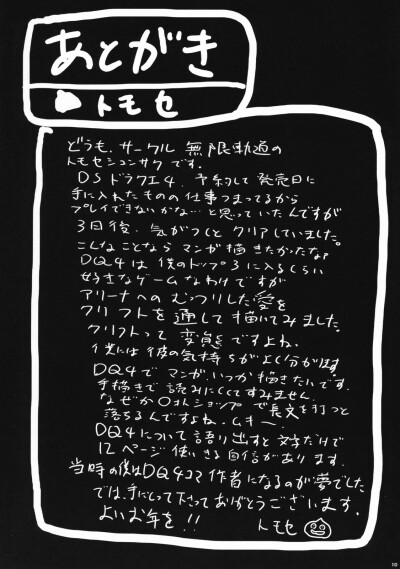 あとがき
トモセ
どうも、サークル 無限軌道の
トモセシュンサク です。
DS ドラクエ4、予約して 発売日に
手に入れたものの仕事つまってるから
プレイできないかな…と思っていたんですが
3日後、気がつくと クリアしていました。
こんなことなら マンガ描きたかったなァ
DQ4は 僕のトップ3に入るくらい
好きなゲームなわけですが
アリーナへの むっつりした愛を
クリフトを通して描いてみました。
クリフトって 変態ですよね。
僕には 彼の気持ちがよく分かります
DQ4で マンガ、いつか描きたいです。
手描きで 読みにくくてすみません。
なぜかフォトショップ で長文を打つと
落ちるんですよね、ムキー。
DQ4について 語り出すと 文字だけで
12ページ使いきる自信があります。
当時の僕はDQ4コマ作者になるのが夢でした
では、手にとって下さってありがとうございます。
よいお年を!!
トモセ
10